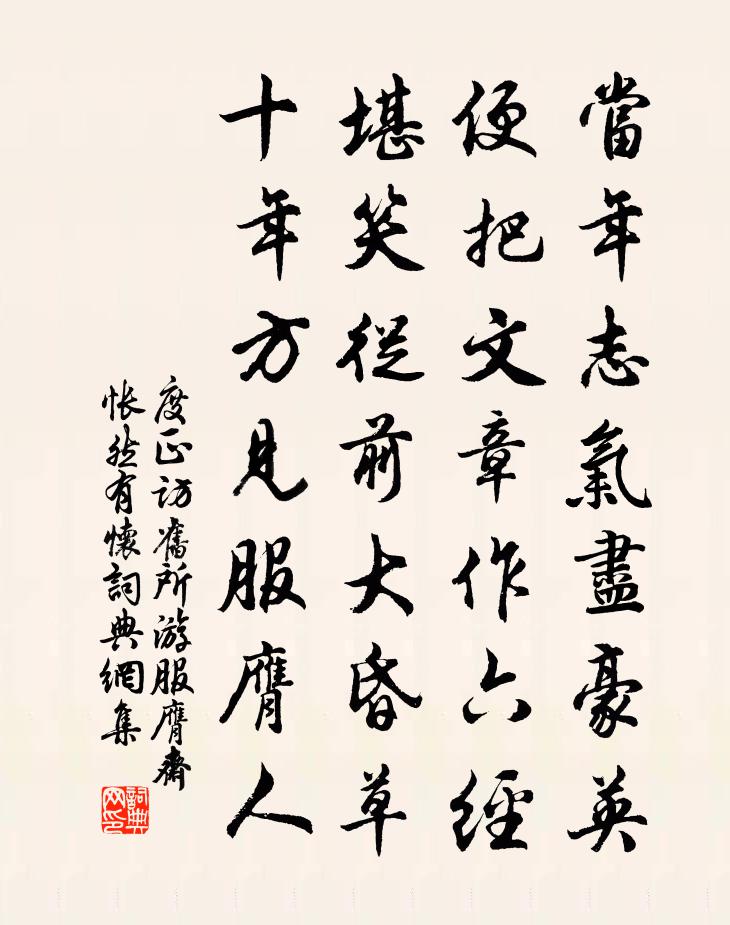 當年志氣盡豪英
便把文章作六經
堪笑從前大昏草
十年方見服膺人
度正訪舊所游服膺齋
悵然有懷詞典網集
詞典
网印